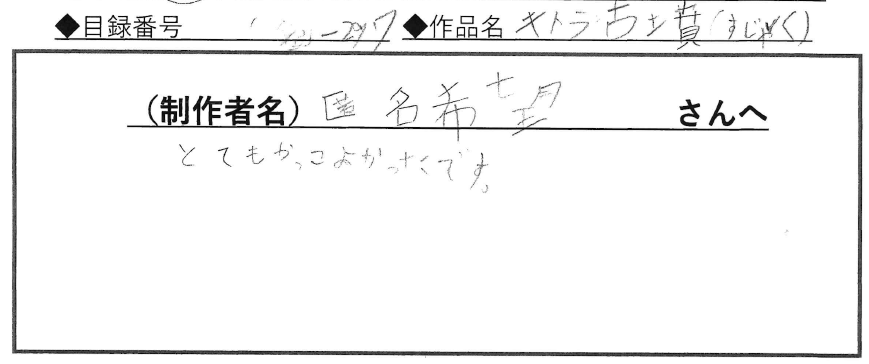 ◆目録番号 -297 ◆作品名 キトラ古墳(すじゃく)
(制作者名) 匿名希望 さんへ
とてもかっこよかったです。